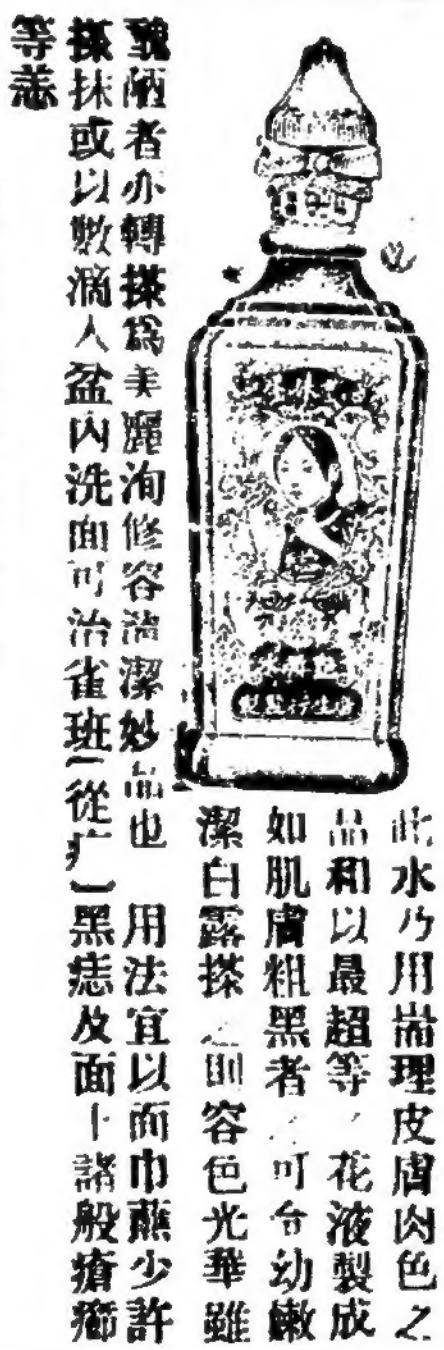 此水乃用當理皮膚肉色之
品和以最超等之花液製成
如肌膚粗黑者搽之可令幼嫩
潔白露搽之則容色光華雖
醜陋者亦轉搽為美麗洵修容清潔妙品也 用法宜以面巾蘸少許
搽抹或以數滴入盆內洗面可治雀班(從疒)黑痣及面上諸般瘡癤
等恙